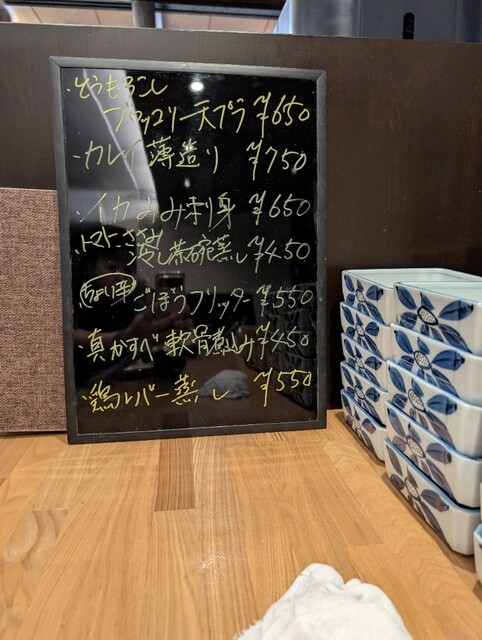 ・とうもろこし
ブロッコリー天プラ ¥650
・カレイ薄造り ¥750
・イカみみ刺身 ¥650
・トマト、ささみ
冷し茶碗蒸し ¥450
ちょい辛 ごぼうフリッター ¥550
・真かすべ軟骨煮込み ¥450
・鶏レバー蒸し ¥550